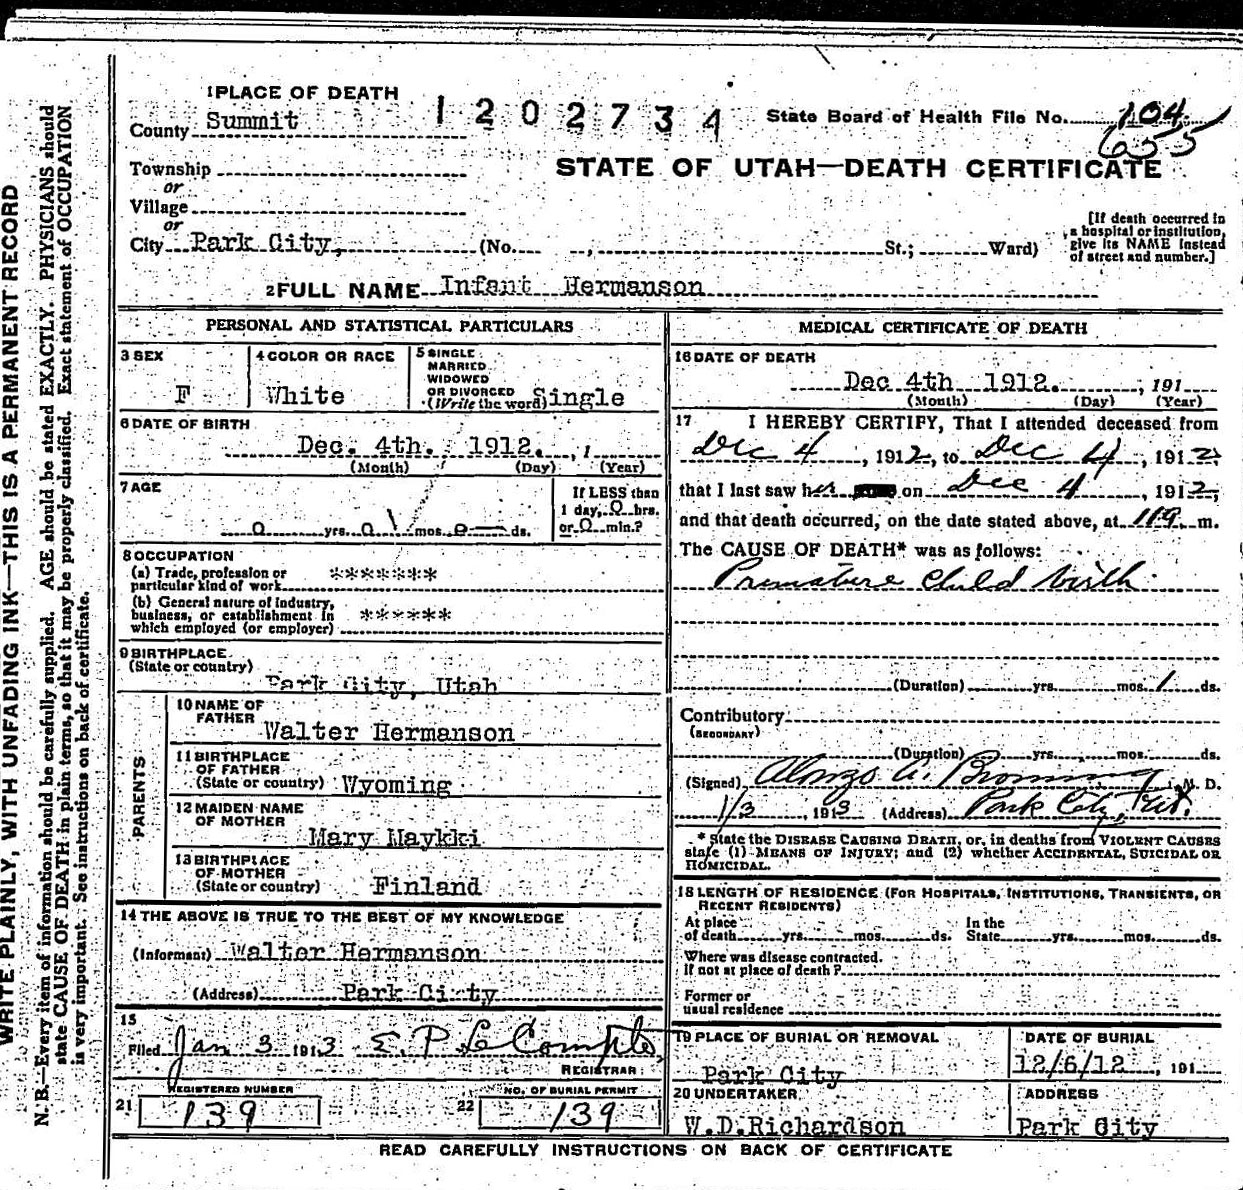 WRITE PLAINLY, WITH UNFADING INK—THIS IS A PERMANENT RECORD
N. B.—Every item of information should be carefully supplied. AGE should be stated EXACTLY. PHYSICIANS should
state CAUSE OF DEATH in plain terms, so that it may be properly classified. Exact statement of OCCUPATION
is very important. See instructions on back of certificate.
1 PLACE OF DEATH
1202734
State Board of Health File No. 104
655
County Summit
STATE OF UTAH—DEATH CERTIFICATE
Township
or
Village
or
City Park City, (No. , St.; Ward)
[If death occurred in
a hospital or institution,
give its NAME instead
of street and number.]
2 FULL NAME Infant Hermanson
PERSONAL AND STATISTICAL PARTICULARS
3 SEX
F
4 COLOR OR RACE
White
5 SINGLE
MARRIED
WIDOWED
OR DIVORCED
(Write the word) Single
6 DATE OF BIRTH
Dec. 4th. 1912. , 1
(Month) (Day) (Year)
7 AGE
0 yrs. 0 mos. 0 ds.
If LESS than
1 day, 0 hrs.
or 0 min.?
8 OCCUPATION
(a) Trade, profession or
particular kind of work *******
(b) General nature of industry,
business, or establishment in
which employed (or employer) ******
9 BIRTHPLACE
(State or country)
Park City, Utah
PARENTS
10 NAME OF
FATHER
Walter Hermanson
11 BIRTHPLACE
OF FATHER
(State or country) Wyoming
12 MAIDEN NAME
OF MOTHER
Mary Maykki
13 BIRTHPLACE
OF MOTHER
(State or country) Finland
14 THE ABOVE IS TRUE TO THE BEST OF MY KNOWLEDGE
(Informant) Walter Hermanson
(Address) Park City
15
Filed Jan 3 1913 E. P. LeCompte,
REGISTRAR
REGISTERED NUMBER
21 139
NO. OF BURIAL PERMIT
22 139
MEDICAL CERTIFICATE OF DEATH
16 DATE OF DEATH
Dec 4th 1912. , 191
(Month) (Day) (Year)
17 I HEREBY CERTIFY, That I attended deceased from
Dec 4, 1912, to Dec 4, 1912,
that I last saw her on Dec 4, 1912,
and that death occurred, on the date stated above, at m.
The CAUSE OF DEATH* was as follows:
Premature Child birth
(Duration) yrs. mos. 1 ds.
Contributory
(SECONDARY)
(Duration) yrs. mos. ds.
(Signed) Alonzo A. Browning, M. D.
1/3, 1913 (Address) Park City, Ut.
* State the DISEASE CAUSING DEATH, or, in deaths from VIOLENT CAUSES
state (1) MEANS OF INJURY; and (2) whether ACCIDENTAL, SUICIDAL OR
HOMICIDAL.
18 LENGTH OF RESIDENCE (FOR HOSPITALS, INSTITUTIONS, TRANSIENTS, OR
RECENT RESIDENTS)
At place
of death yrs. mos. ds. In the
State yrs. mos. ds.
Where was disease contracted.
If not at place of death?
Former or
usual residence
19 PLACE OF BURIAL OR REMOVAL
Park City
DATE OF BURIAL
12/6/12, 191
20 UNDERTAKER
W.D.Richardson
ADDRESS
Park City
READ CAREFULLY INSTRUCTIONS ON BACK OF CERTIFICATE